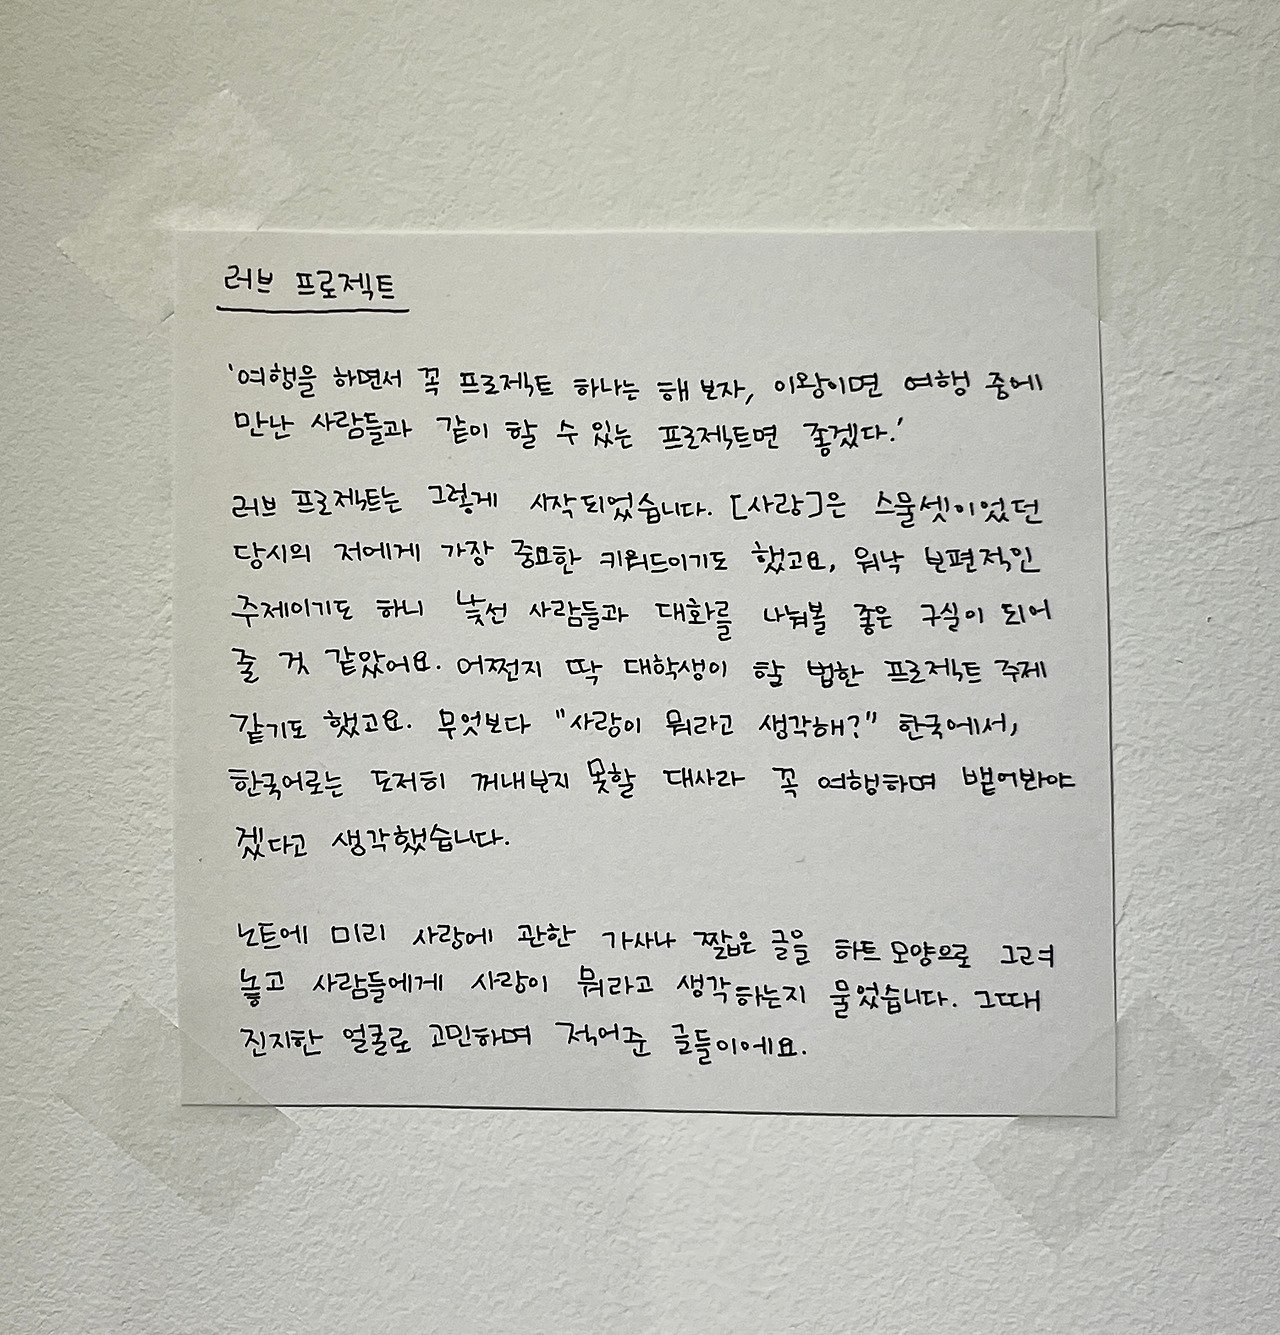 러브 프로젝트
'여행을 하면서 꼭 프로젝트 하나는 해 보자, 이왕이면 여행 중에
만난 사람들과 같이 할 수 있는 프로젝트면 좋겠다.'
러브 프로젝트는 그렇게 시작되었습니다. [사랑]은 스물셋이었던
당시의 저에게 가장 중요한 키워드이기도 했고요, 워낙 보편적인
주제이기도 하니 낯선 사람들과 대화를 나눠볼 좋은 구실이 되어
줄 것 같았어요. 어쩐지 딱 대학생이 할 법한 프로젝트 주제
같기도 했고요. 무엇보다 "사랑이 뭐라고 생각해?" 한국에서,
한국어로는 도저히 꺼내보지 못할 대사라 꼭 여행하며 뱉어봐야
겠다고 생각했습니다.
노트에 미리 사랑에 관한 가사나 짧은 글을 하트 모양으로 그려
놓고 사람들에게 사랑이 뭐라고 생각하는지 물었습니다. 그때
진지한 얼굴로 고민하며 적어준 글들이에요.